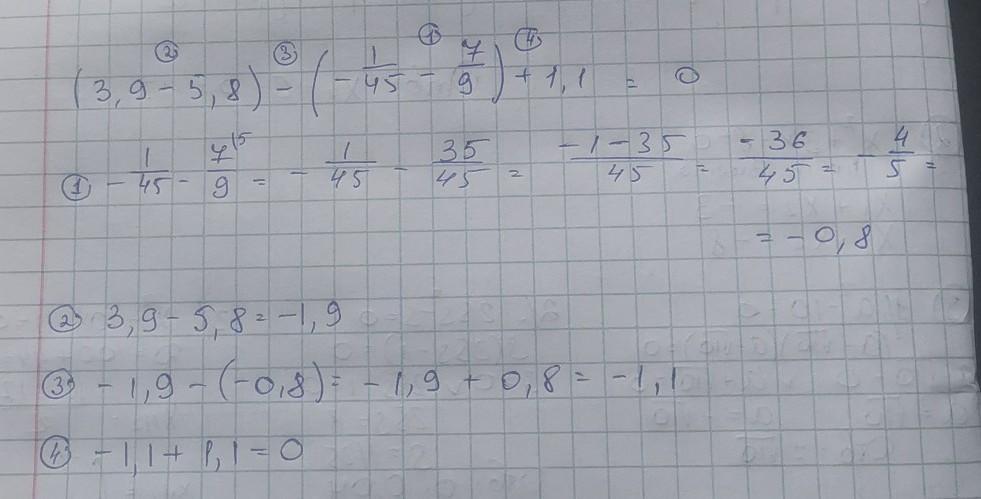 ② ③ ① ④
(3,9 - 5,8) - (- 1/45 - 7/9) + 1,1 = 0
① - 1/45 - 7\5/9 = - 1/45 - 35/45 = -1-35/45 = -36/45 = - 4/5 =
= -0,8
② 3,9 - 5,8 = -1,9
③ -1,9 - (-0,8) = -1,9 + 0,8 = -1,1
④ -1,1 + 1,1 = 0